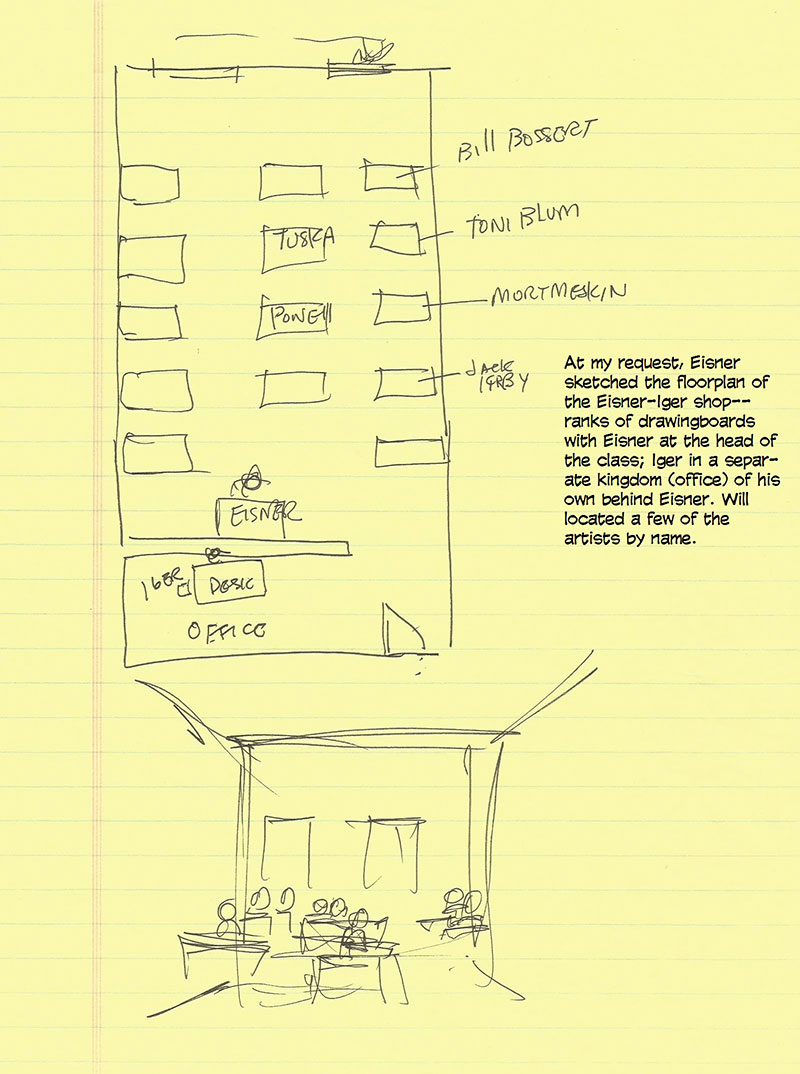 Bill BOSSERT
TUSKA
TONI BLUM
POWEll
MORT MESKIN
JACK
KIRBY
At my request, Eisner
sketched the floorplan of
the Eisner-Iger shop--
ranks of drawingboards
with Eisner at the head of
the class; Iger in a separ-
ate kingdom (office) of his
own behind Eisner. Will
located a few of the
artists by name.
EISNER
IGER
DESK
OFFICE